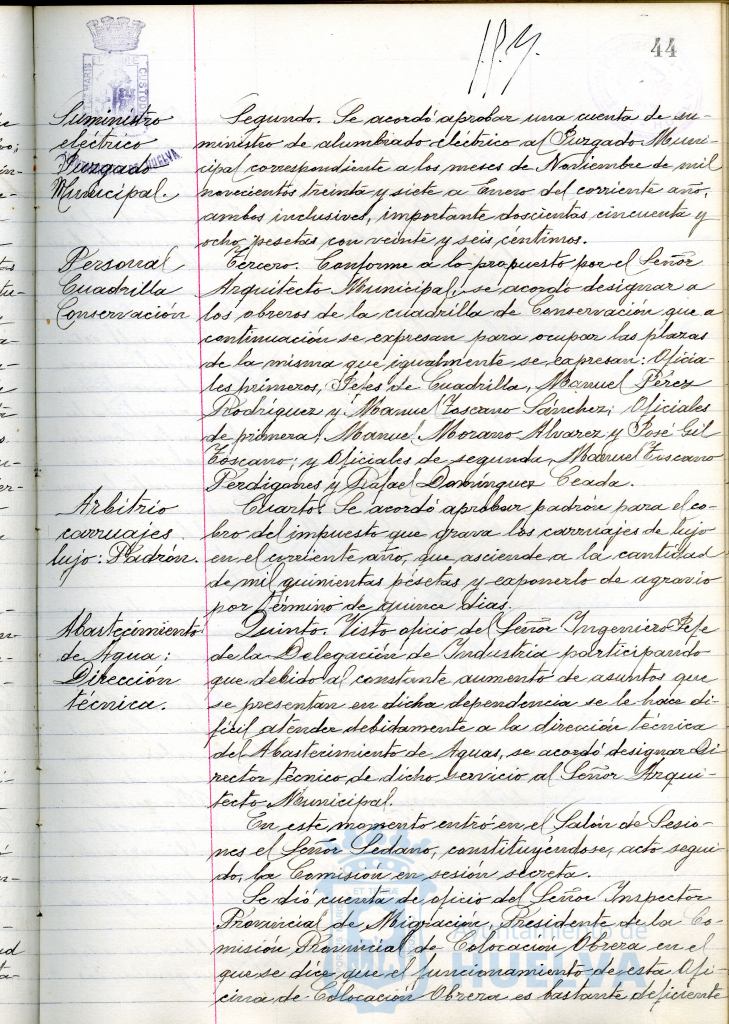 44
Suministro
eléctrico
Juzgado
Municipal.
Segundo. Se acordó aprobar una cuenta de su-
ministro de alumbrado eléctrico al Juzgado Muni-
cipal correspondiente a los meses de Noviembre de mil
novecientos treinta y siete a Enero del corriente año,
ambos inclusives, importante doscientas cincuenta y
ocho pesetas con veinte y seis céntimos.
Personal
Cuadrilla
Conservación
Tercero. Conforme a lo propuesto por el Señor
Arquitecto Municipal, se acordó designar a
los obreros de la cuadrilla de Conservación que a
continuación se expresan para ocupar las plazas
de la misma que igualmente se expresan: Oficia-
les primeros, Jefes de Cuadrilla, Manuel Pérez
Rodríguez y Manuel Toscano Sánchez; Oficiales
de primera, Manuel Morano Alvarez y José Gil
Toscano; y Oficiales de segunda, Manuel Toscano
Perdigones y Rafael Domínguez Ceada.
Arbitrio
carruajes
lujo: Padrón.
Cuarto. Se acordó aprobar padrón para el co-
bro del impuesto que grava los carruajes de lujo
en el corriente año, que asciende a la cantidad
de mil quinientas pesetas y exponerlo de agravio
por término de quince días.
Abastecimiento
de Agua:
Dirección
técnica.
Quinto. Visto oficio del Señor Ingeniero Jefe
de la Delegación de Industria participando
que debido al constante aumento de asuntos que
se presentan en dicha dependencia se le hace di-
fícil atender debidamente a la dirección técnica
del Abastecimiento de Aguas, se acordó designar Di-
rector técnico de dicho servicio al Señor Arqui-
tecto Municipal.
En este momento entró en el Salón de Sesio-
nes el Señor Sedano, constituyéndose, acto segui-
do, la Comisión en sesión secreta.
Se dió cuenta de oficio del Señor Inspector
Provincial de Migración, Presidente de la Co-
misión Provincial de Colocación Obrera en el
que se dice que el funcionamiento de esta Ofi-
cina de Colocación Obrera es bastante deficiente
Ayuntamiento de
HUELVA